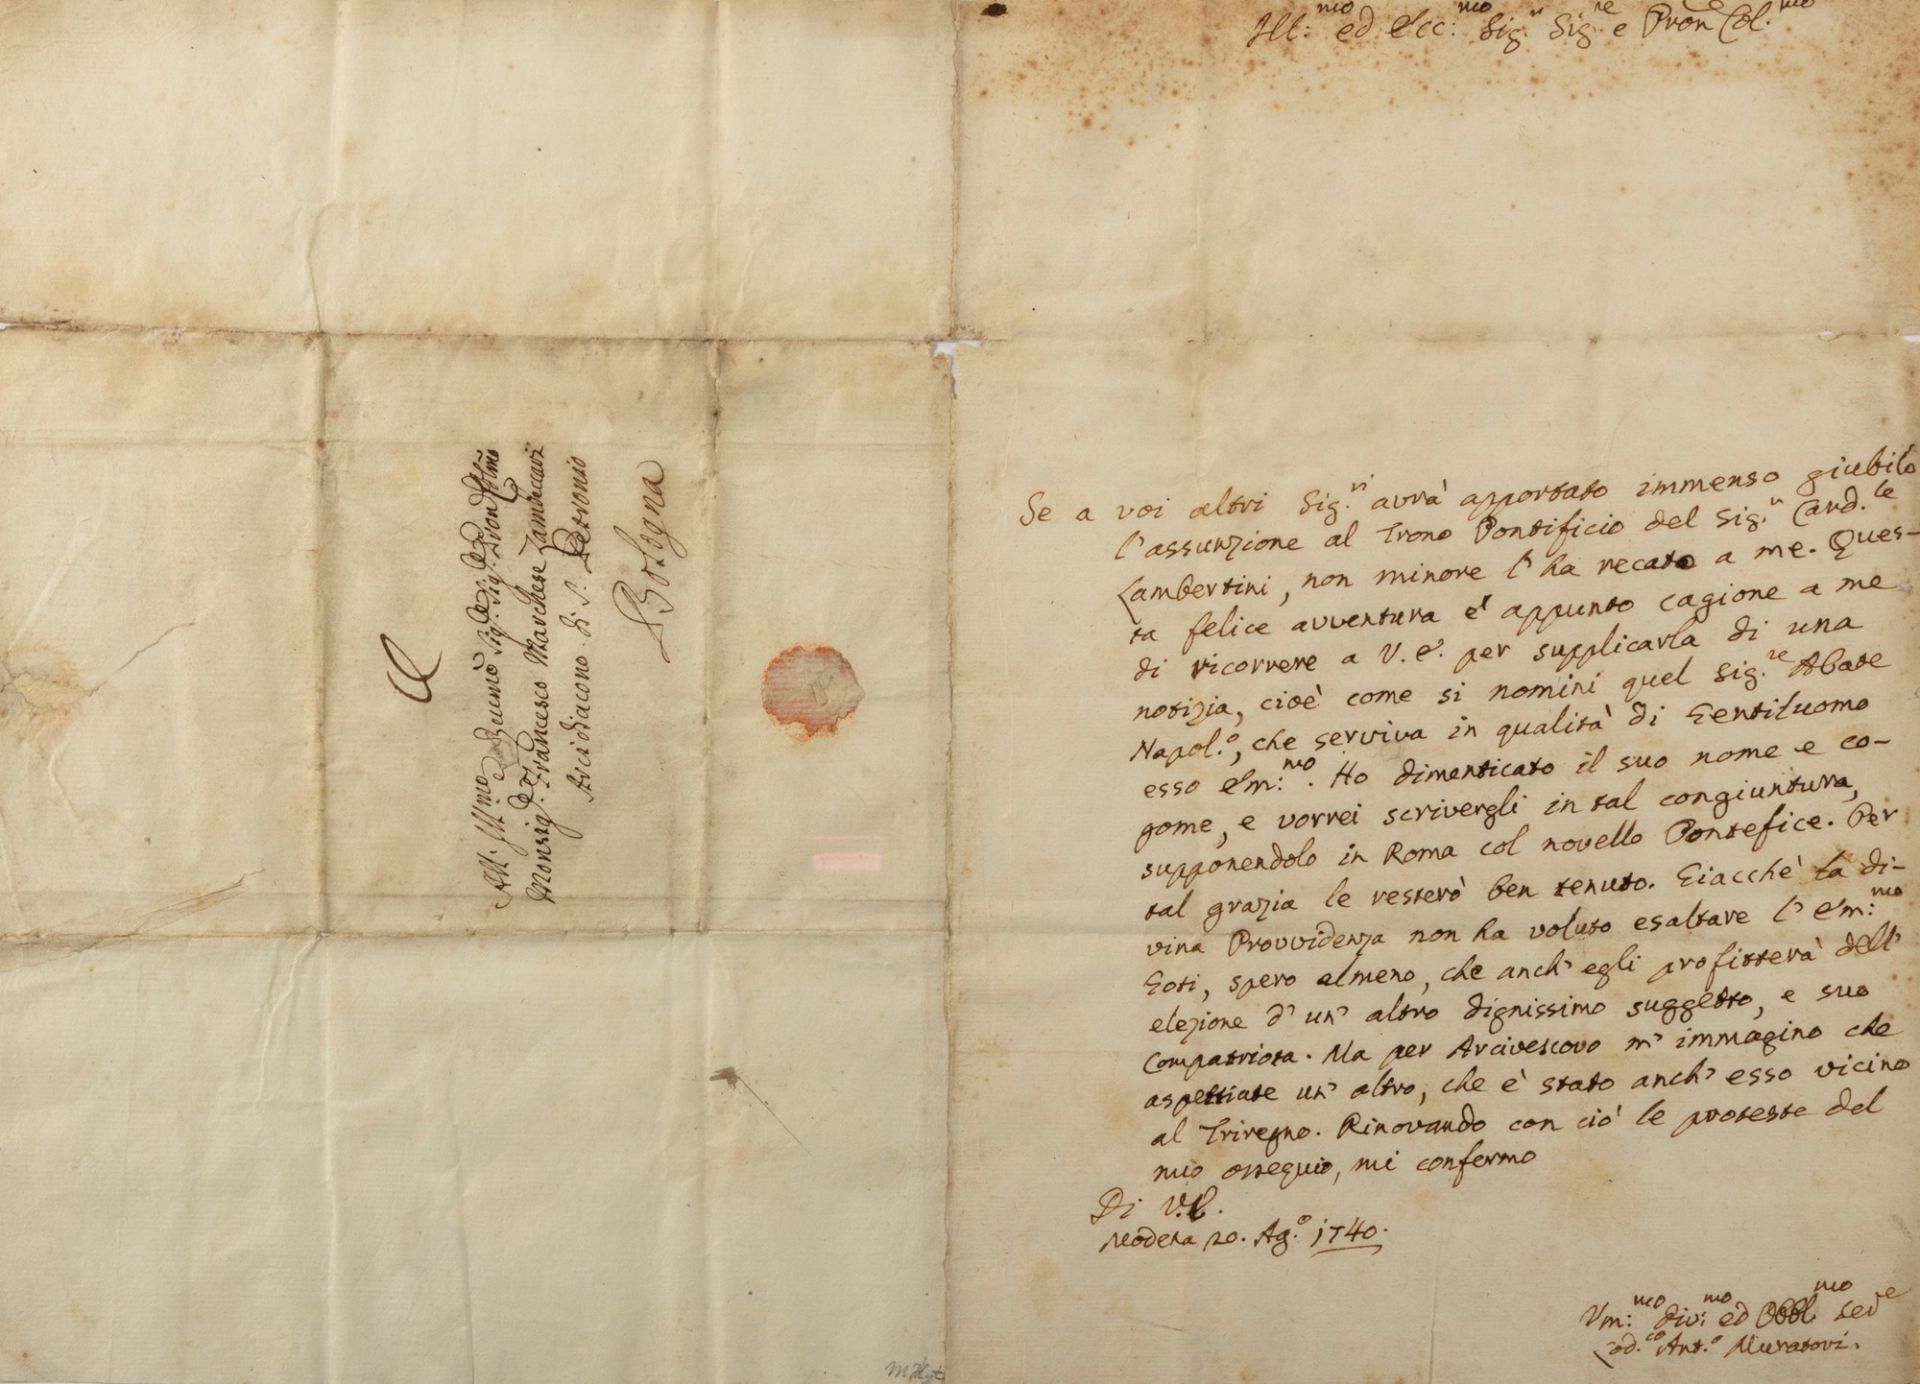 Ill:mo ed Ecc:mo Sig.r Sig.re e Pron Col.mo
Se a voi altri Sig.ri avrà apportato immenso giubilo
l'assunzione al Trono Pontificio del Sig.r Card.le
Lambertini, non minore l'ha recato a me. Ques-
ta felice avventura è appunto cagione a me
di ricorrere a V.E. per supplicarla di una
notizia, cioè come si nomini quel Sig.re Abate
Napol.o, che serviva in qualità di Gentiluomo
esso Em:mo. Ho dimenticato il suo nome e co-
gome, e vorrei scrivergli in tal congiuntura,
supponendolo in Roma col novello Pontefice. Per
tal grazia le resterò ben tenuto. Giacchè la di-
vina Provvidenza non ha voluto esaltare l'Em:mo
Goti, spero almeno, che anch'egli profitterà dell'
elezione d'un'altro dignissimo suggetto, e suo
Compatriota. Ma per Arcivescovo m'immagino che
aspettiate un'altro, che è stato anch'esso vicino
al Triregno. Rinovando con ciò le proteste del
mio ossequio, mi confermo
Di V.E.
Modena 20. Ag.o 1740.
Um:mo div:mo ed Obbl mo Ser.e
Lod.co Ant.o Muratori.
All' Illmo Sig.re Sig.re Pron Colmo
Monsig.re Francesco Marchese Zambeccari
Arcidiacono di S. Petronio
Bologna